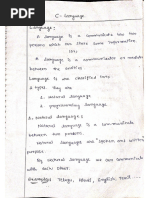 C - Language
Language:
A language is a communicate the two
persons which has share some representation
etc.
A language is a communication or mediator
between the entities.
Language is also classified into
2 types. They are
1. natural language
2. programming language
1. natural language:
Natural language is a communicate
between two persons.
Natural language will spoken and written
by people.
By natural language we can communicate
with each other.
Examples: Telugu, Hindi, English, Tamil